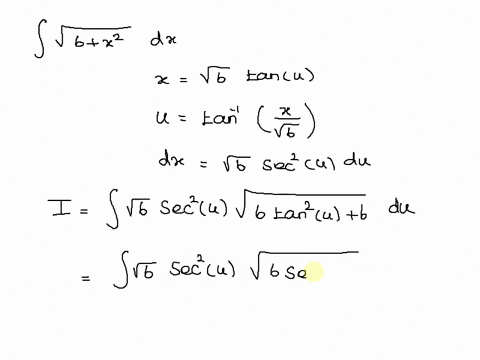 ∫ √(b+x²) dx
x = √b tan(u)
u = tan⁻¹ (x/√b)
dx = √b sec²(u) du
I = ∫ √b sec²(u) √(b tan²(u) + b) du
= ∫ √b sec²(u) √(b se